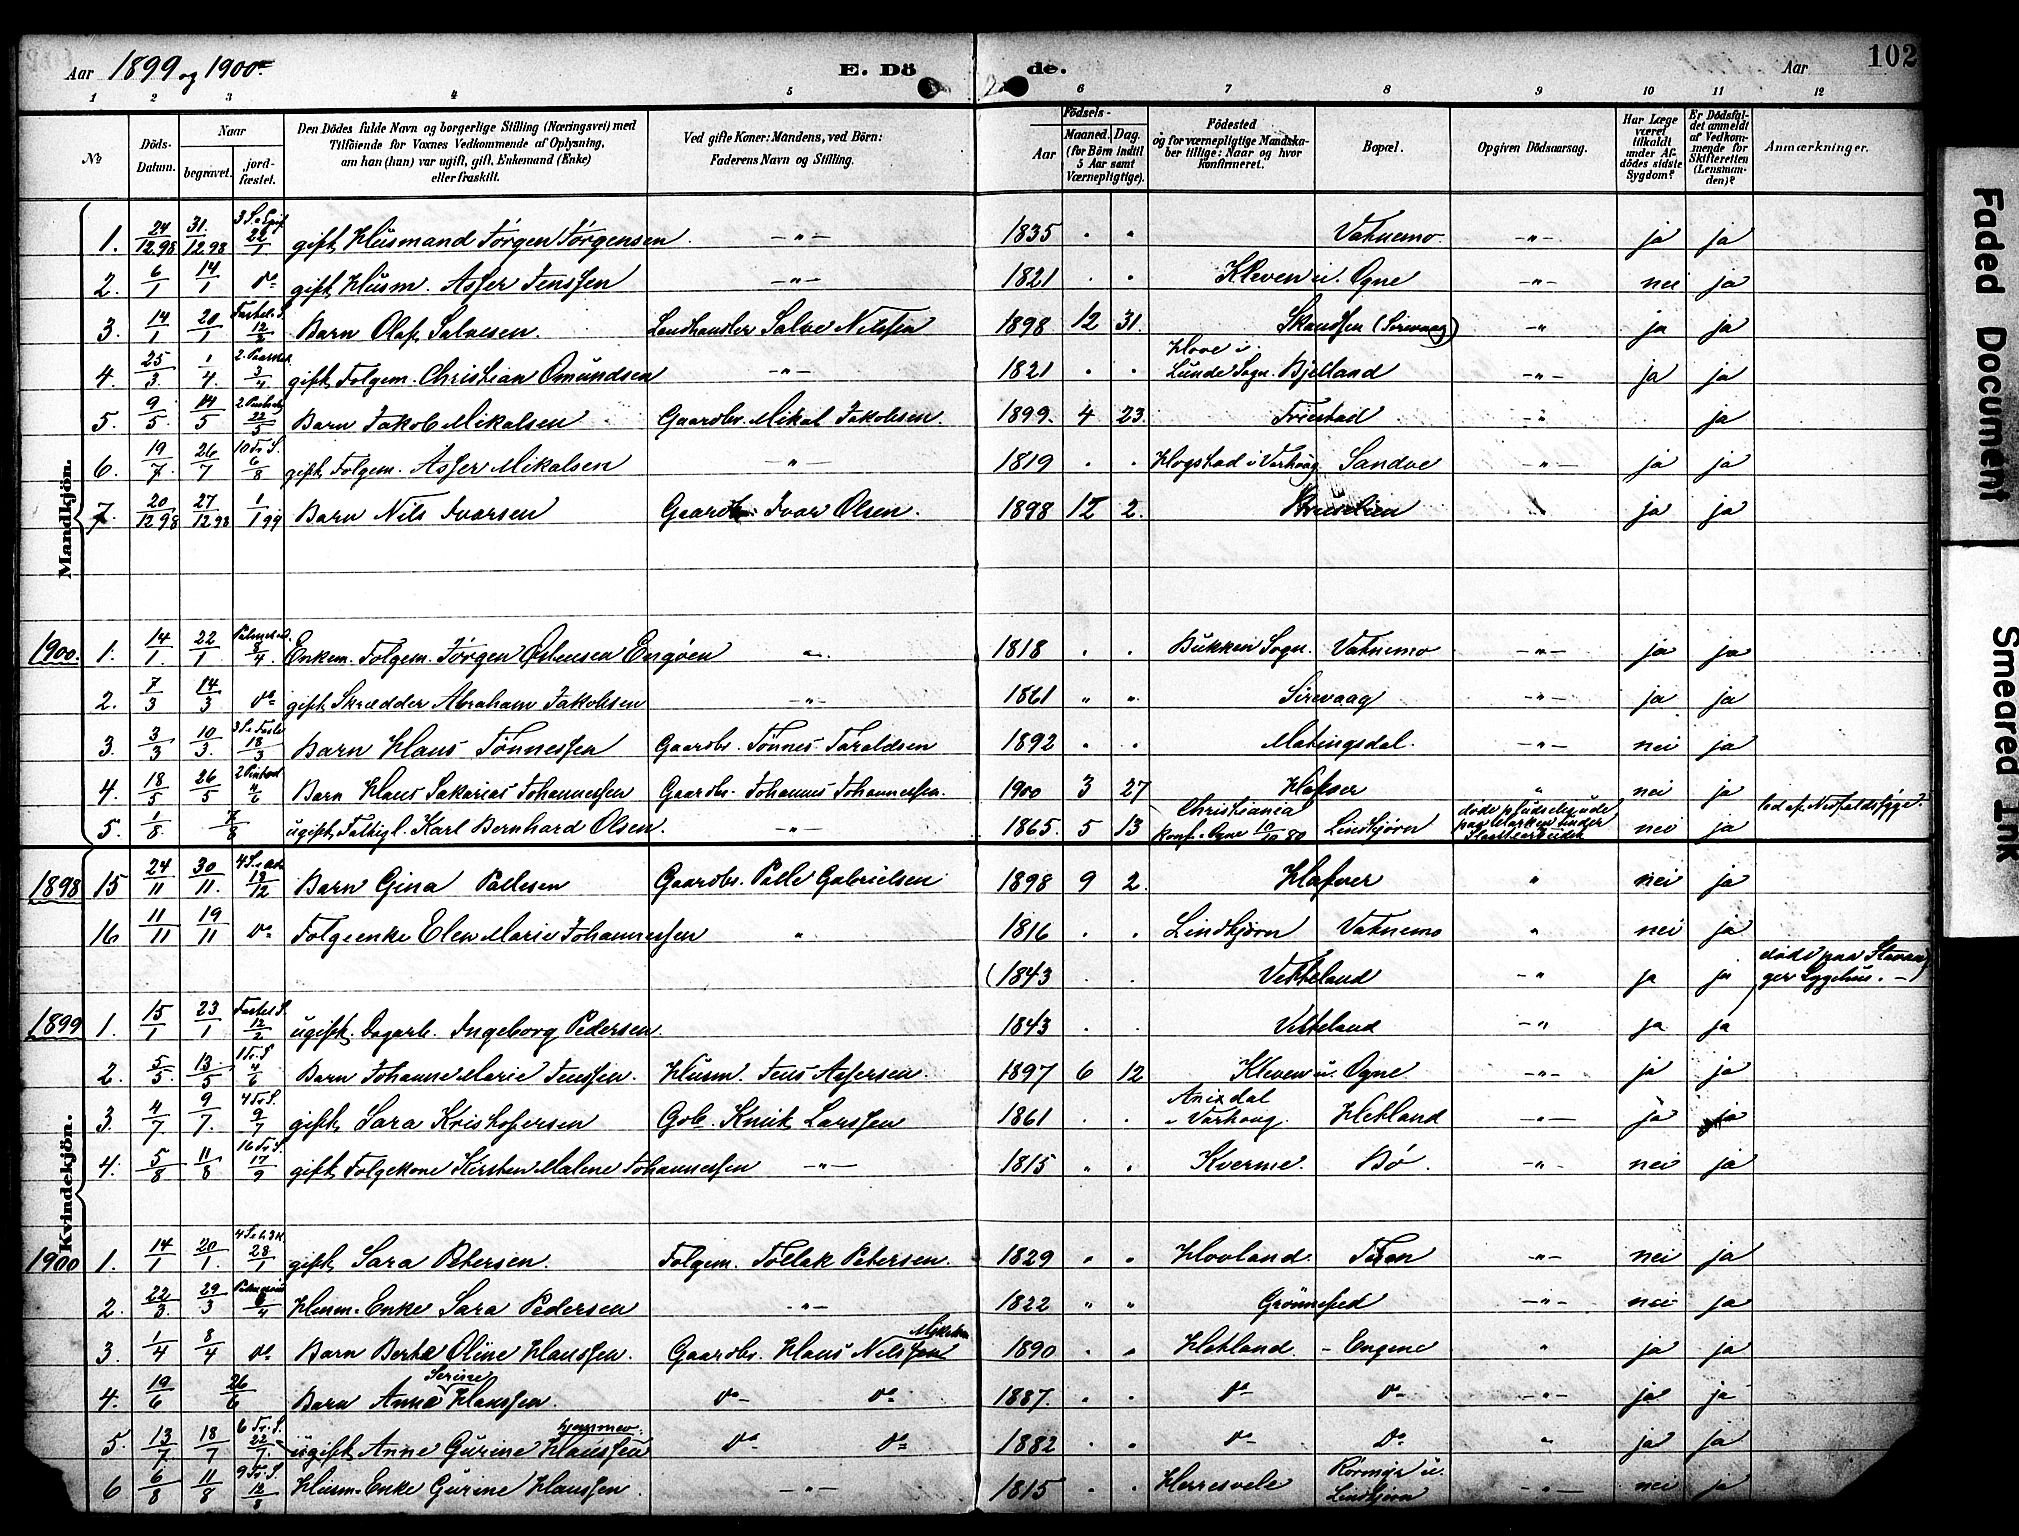 Aar 1899 og 1900 E. Dö de. Aar 102
1 2 3 4 5 6 7 8 9 10 11 12
No Döds-Datum. Naar begravet. jordfæstet. Den Dödes fulde Navn og borgerlige Stilling (Næringsvei) med Tilföiende for Voxnes Vedkommende af Oplysning, om han (hun) var ugift, gift, Enkemand (Enke) eller fraskilt. Ved gifte Koner: Mandens, ved Börn: Faderens Navn og Stilling. Födsels- Aar Maaned. Dag. (for Börn indtil 5 Aar samt Værnepligtige). Födested og for værnepligtige Mandskaber tillige: Naar og hvor konfirmeret. Bopæl. Opgiven Dödsaarsag. Har Læge været tilkaldt under Afdödes sidste Sygdom? Er Dödsfaldet anmeldt af Vedkommende for Skifteretten (Lensmanden)? Anmærkninger.
Mandkjön.
1. 24/12.98 31./12.98 3 S. e Epif. 22/1 gift Husmand Jørgen Jørgensen. -"- 1835 " " Vatnemo -"- ja ja
2. 6/1 14/1 do gift Husm. Asser Jenssen -"- 1821 . " Kleven u. Ogne -"- nei ja
3. 14/1 20/1 Fastel. S. 12/2 Barn Olaf Salvesen. Landhandler Salve Nilssen 1898 12 31. Skandsen (Sirevaag) -" ja ja
4. 25/3 1/4. 3/4 gift Folgem. Christian Omundsen -"- 1821 . . Hove i Lunde Sogn. Bjelland -"- ja ja
5. 9/5. 14/5 22/5 Barn Jakob Mikalsen Gaardbr. Mikal Jakobsen. 1899. 4 23. Friestad -" ja
6. 19/7. 26/7 10 Tr. S. 6/8 gift Folgem. Asser Mikalsen -"- 1819 . . Hogstad i Varhaug Sandve -"- ja ja
7. 20/12 98 27/12 98 1/1 99 Barn Nils Ivarsen Gaardbr. Ivar Olsen. 1898 12 2. ja ja
1900. 1. 14/1. 22/1 8/4. Enkem. Folgem. Jørgen Østensen Engøen " 1818 . . Bukken Sogn. Vatnemo -"- ja ja
2. 7/3 14/3 do gift Skrædder Abraham Jakobsen -"- 1861 " " Sirevaag -"- ja ja
3. 3/3 10/3. 18/3 Barn Hans Tønnessen Gaardbr. Tønnes Taraldsen 1892 " " Matingsdal. -"- nei ja
4. 18/5 26/5 Barn Hans Sakarias Johannessen Gaardbr. Johannes Johannessen. 1900 3 27 Hafver " nei ja
5. 1/8 7/8 ugift Karl Bernhard Olsen. -"- 1865. 5 13 Christiania konf. Ogne 10/10 80 Lindtjørn nei ja
1898 15 24/11 30/11. 18/12 Barn Gina Pallesen Gaardbr. Palle Gabrielsen 1898 9 2. Hafver " nei ja
16 11/11 19/11 do Folgeenke Elen Marie Johannessen " 1816 . . Lindtjørn Vatnemo " nei ja
(1843 . . Vetteland -"- ja ja døde paa Stavanger Sygehus. -)
Kvindekjön.
1899 1. 15/1 23/1 Fastel S. 12/2 ugift. Dagarb. Ingeborg Pedersen. 1843 . . Vetteland -"- ja ja
2. 5/5. 13/5 1 Tr. S 4/6 Barn Johanne Marie Jenssen. Husm. Jens Assersen. 1897 6 12 Kleven u. Ogne. -"- ja ja
3. 4/7 9/7. 4 Tr. S. 9/7 gift Sara Kristofersen Gbr. Knut Larssen 1861 . . Anisdal " Varhaug. Hetland -"- ja ja
4. 5/8 11/8 16 Tr. S. 17/9 gift Folgekone Kirsten Malene Johannessen -"- 1815 " " Kverme. Bø. -"- nei ja
1900 1. 14/1 20/1. 28/1 gift Sara Petersen. Folgem. Tollak Petersen. 1829 " " Hovland. -"- nei ja
2. 22/3. 29/3 Husm. Enke Sara Pedersen -"- 1822 " " -"- nei ja
3. 1/4 8/4 do Barn Berte Oline Hanssen. Gaardbr. Hans Nilssen 1890 . . Hetland. - Engene " ja ja
4. 19/6 26/6 Barn Anna Serine Hanssen. do do 1887. . . do do -"- ja ja
5. 13/7. 18/7 6 Tr. S. 22/7. ugift Anne Gurine Hanssen do do 1882 . . do Do " ja ja
6 6/8 11/8 9 Tr. S. 12/8 Husm. Enke Gurine Hanssen. -"- 1815 . . Herresvele Rørmyr u. Lindtjørn -"- nei ja
Faded Document
Smeared Ink